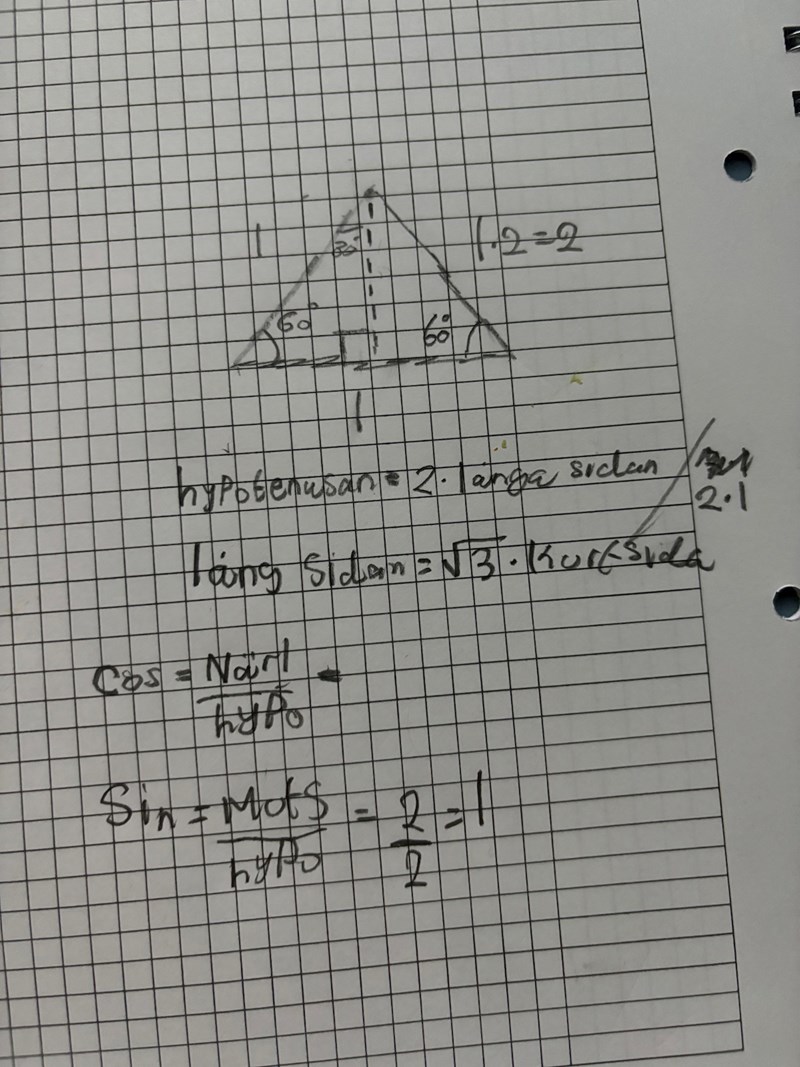 1
30°
1.2=2
60°
60°
1
hypotenusan = 2. långa sidan
2.1
lång Sidan = √3 . Kort sida
Cos = Närl/hypo =
Sin = MotS/hypo = 2/2 = 1